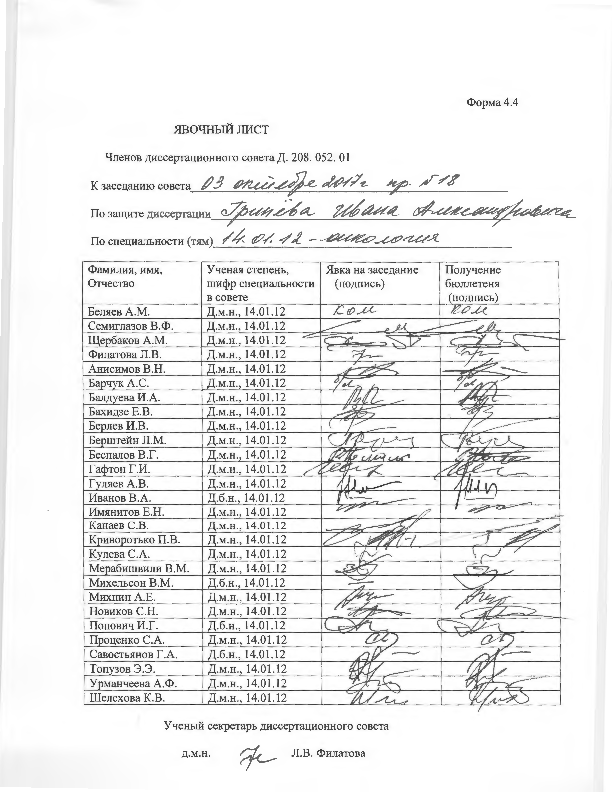 Форма 4.4
ЯВОЧНЫЙ ЛИСТ
Членов диссертационного совета Д. 208. 052. 01
К заседанию совета 03 октября 2017г пр. №18
По защите диссертации Гринёва Ивана Александровича
По специальности (тям) 14.01.12 - онкология
Фамилия, имя, Отчество Ученая степень, шифр специальности в совете Явка на заседание (подпись) Получение бюллетеня (подпись)
Беляев А.М. Д.м.н., 14.01.12 ком ком
Семиглазов В.Ф. Д.м.н., 14.01.12
Щербаков А.М. Д.м.н., 14.01.12
Филатова Л.В. Д.м.н., 14.01.12
Анисимов В.Н. Д.м.н., 14.01.12
Барчук А.С. Д.м.н., 14.01.12
Балдуева И.А. Д.м.н., 14.01.12
Бахидзе Е.В. Д.м.н., 14.01.12
Берлев И.В. Д.м.н., 14.01.12
Берштейн Л.М. Д.м.н., 14.01.12
Беспалов В.Г. Д.м.н., 14.01.12
Гафтон Г.И. Д.м.н., 14.01.12
Гуляев А.В. Д.м.н., 14.01.12
Иванов В.А. Д.б.н., 14.01.12
Имянитов Е.Н. Д.м.н., 14.01.12
Канаев С.В. Д.м.н., 14.01.12
Криворотько П.В. Д.м.н., 14.01.12
Кулева С.А. Д.м.н., 14.01.12
Мерабишвили В.М. Д.м.н., 14.01.12
Михельсон В.М. Д.б.н., 14.01.12
Михнин А.Е. Д.м.н., 14.01.12
Новиков С.Н. Д.м.н., 14.01.12
Попович И.Г. Д.б.н., 14.01.12
Проценко С.А. Д.м.н., 14.01.12
Савостьянов Г.А. Д.б.н., 14.01.12
Топузов Э.Э. Д.м.н., 14.01.12
Урманчеена А.Ф. Д.м.н., 14.01.12
Шелехова К.В. Д.м.н., 14.01.12
Ученый секретарь диссертационного совета
д.м.н. Л.В. Филатова